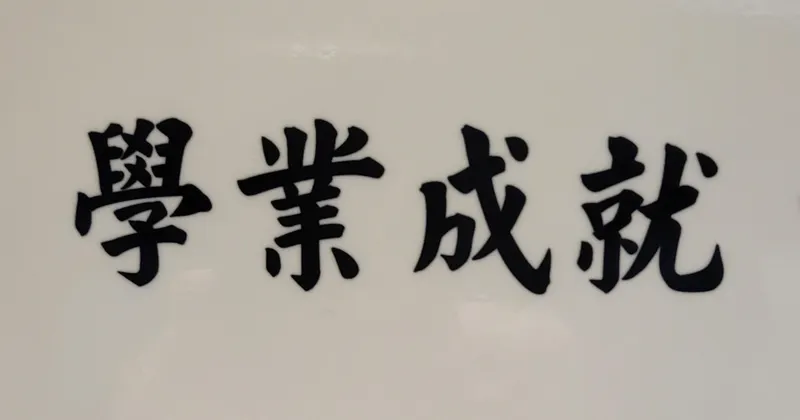 學業成就